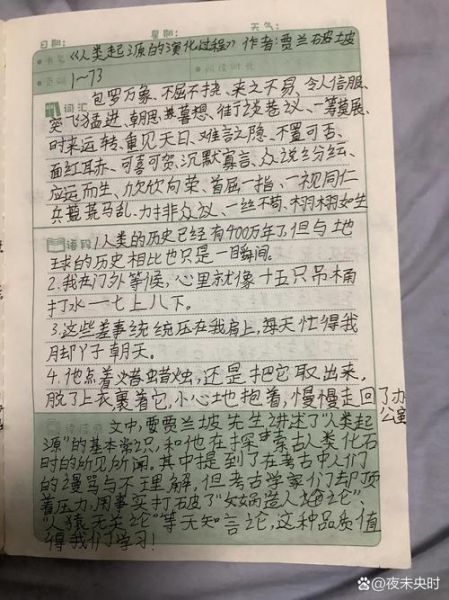 日期： 星期： 天气：
书名 《人类起源的演化过程》 作者：贾兰坡
页码 1~73 阅读时长
词汇 包罗万象、不屈不挠、来之不易、令人信服、
突飞猛进、朝思暮想、街谈巷议、一筹莫展、
时来运转、重见天日、难言之隐、不置可否、
面红耳赤、可喜可贺、沉默寡言、众说纷纭、
应运而生、欣欣向荣、首屈一指、一视同仁
兵荒马乱、力排非众议、一丝不苟、栩栩如生
语段 1.人类的历史已经有400万年了但与地
球的历史相比也只是一瞬间。
2.我在门外等候，心里就像十五只吊桶
打水一七上八下。
3.这些差事统统压在我肩上，每天忙得我
脚丫子朝天。
4.他点着蜡烛，还是把它取出来，
脱了上衣裹着它，小心地抱着，慢慢走回了办
公室
文中，贾兰坡先生讲述了“人类起
源”的基本常识，和他在探索古人类化石
时的所见所闻。其中提到了在考古中人们
的谩骂与不理解，但考古学家们却顶
着压力，用事实打破了“女娲造人论”
“人猿无关论”等无知言论，这种品质值
得我们学习！
@夜未央时